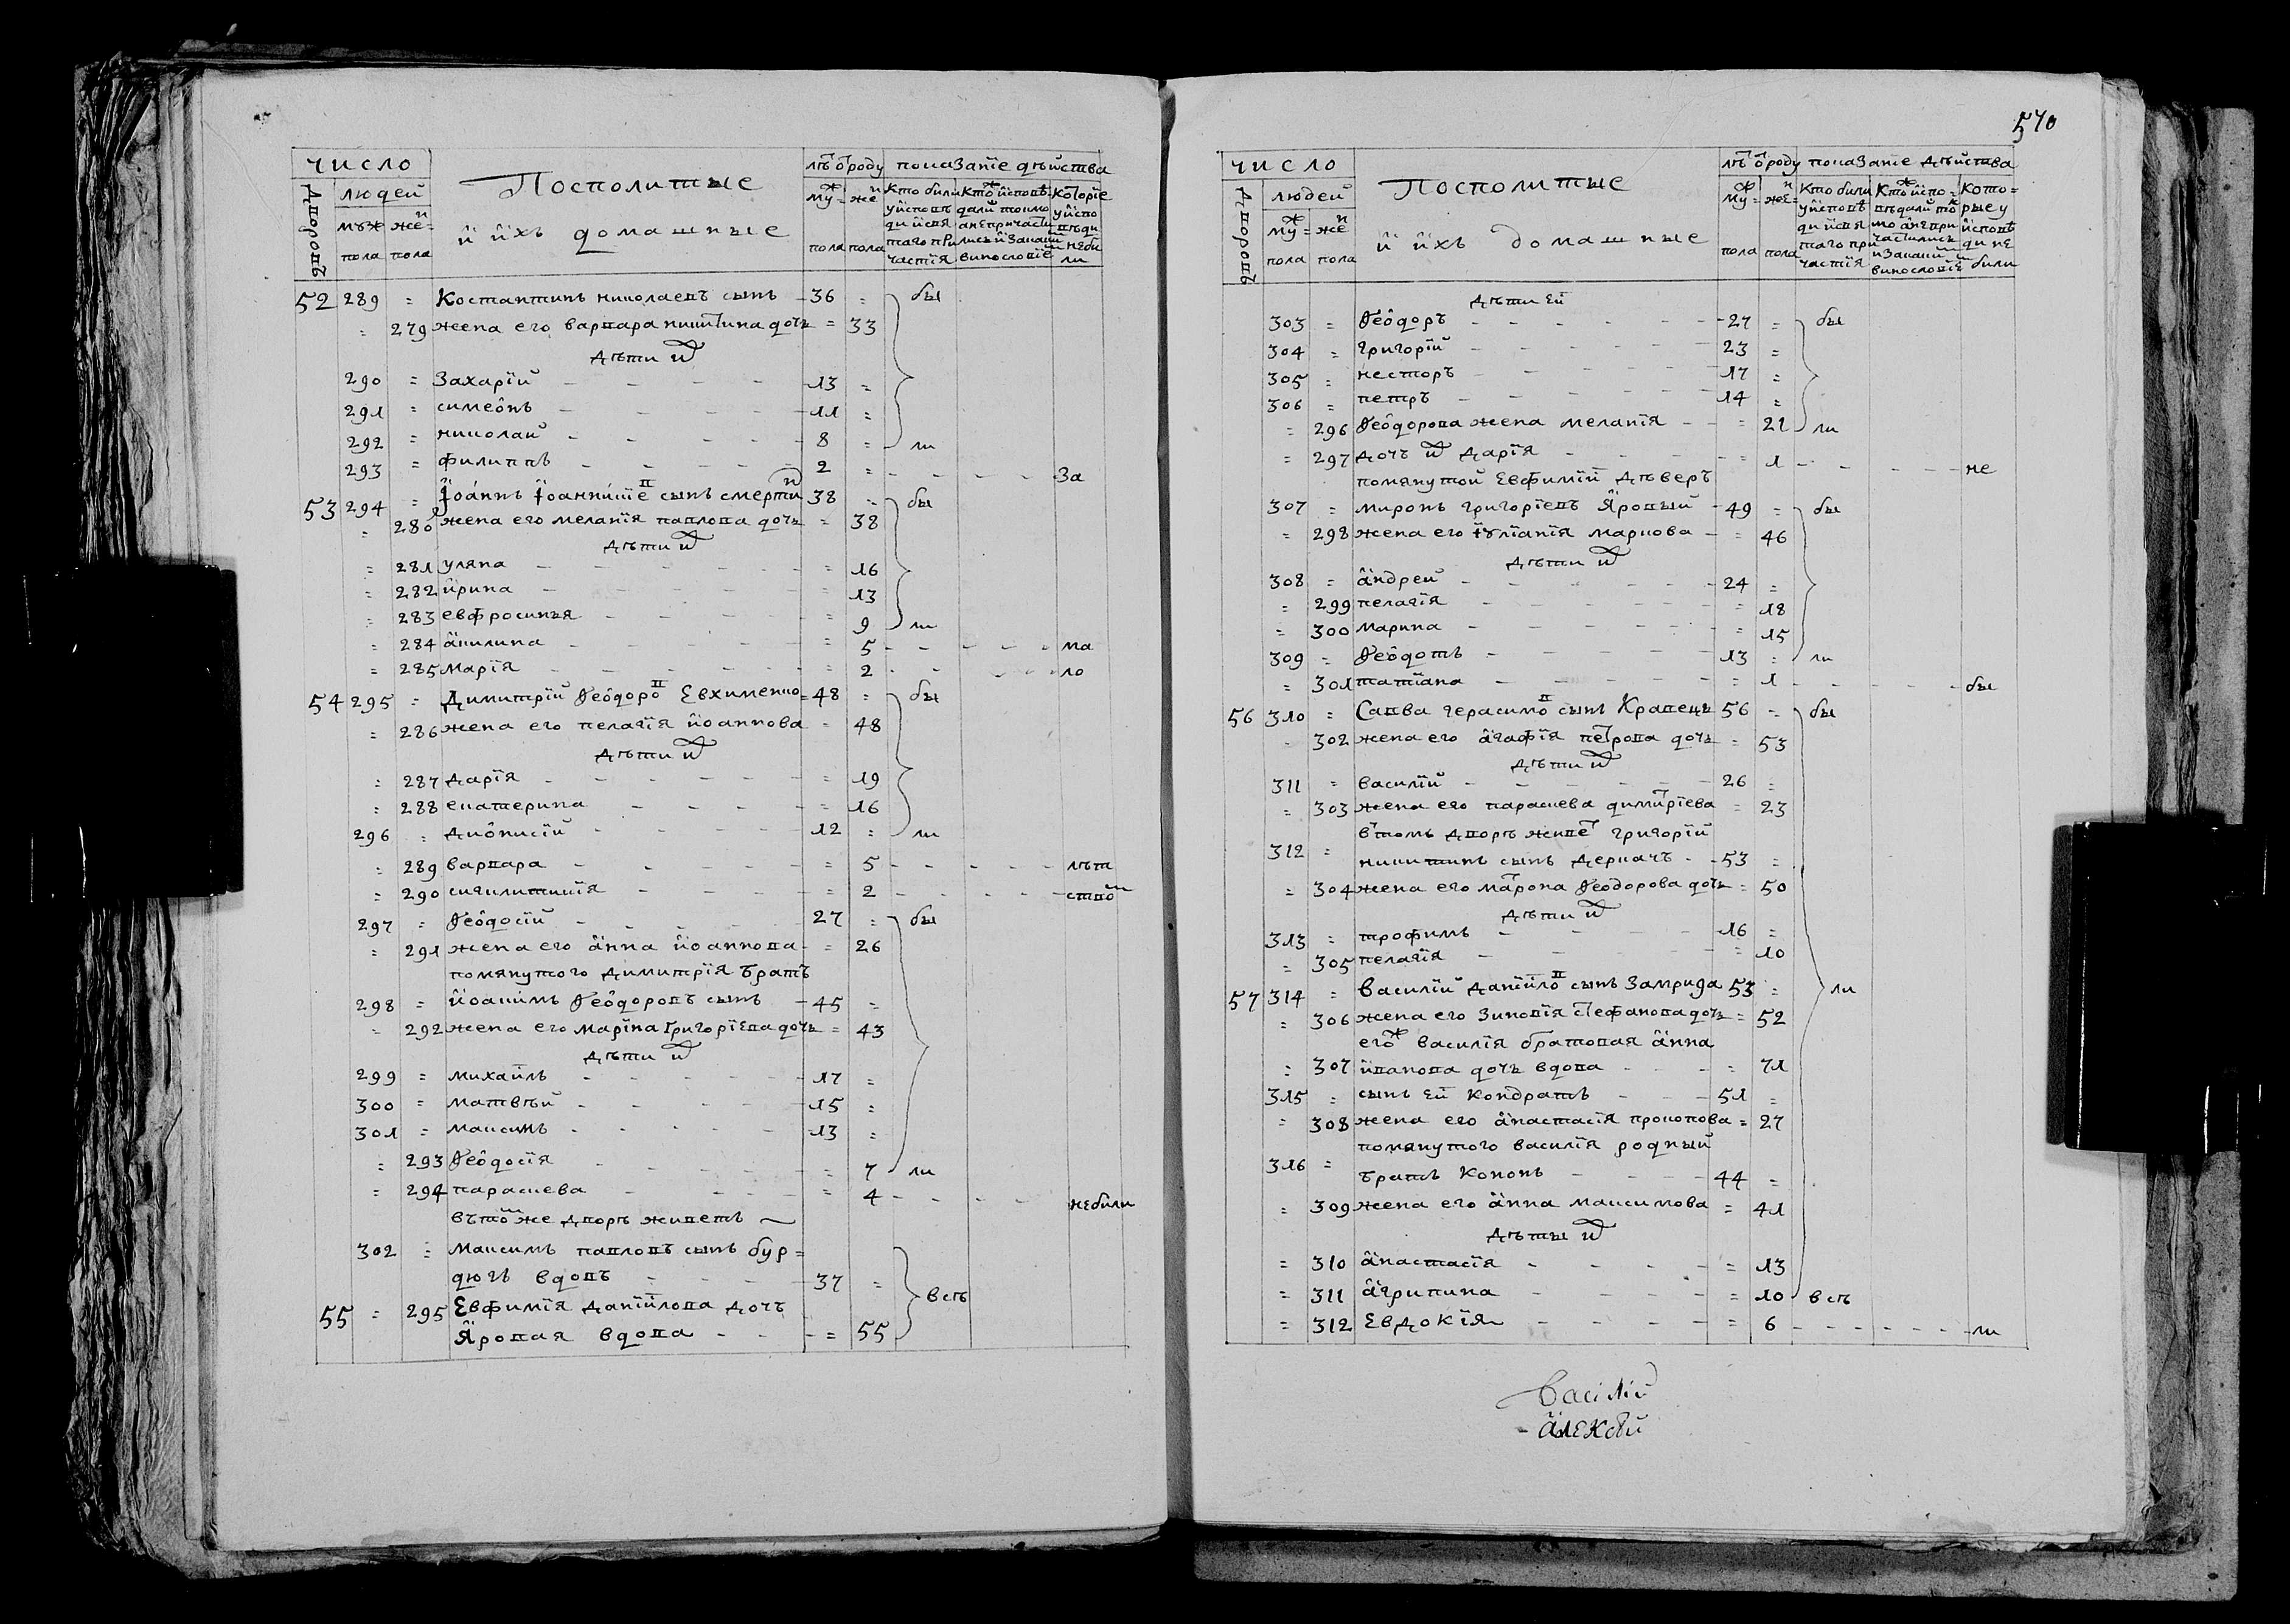 число
Посполитые
лѣт ѿ роду показание дѣйства
дворовъ
людей
и ихъ домашные
муж жен
пола пола
муж жен
пола пола
Кто были у исповѣди и святаго причастия
Кто ж исповѣдались токмо а не причастились и за каким винословием
Которие у исповѣди не были
52 289 = Костантинъ николаевъ сынъ 36 = бы
= 279 жена его варвара никитина дочь = 33
дѣти их
290 = Захарїй 13 =
291 = симеонъ 11 =
292 = николай 8 = ли
293 = филиппъ 2 = За
53 294 = Їоаннъ Їоанникїев сынъ смертин 38 = бы
= 280 жена его меланїя павлова дочь = 38
дѣти их
= 281 уляна = 16
= 282 ирина = 13
= 283 евфросинья = 9 ли
= 284 акилина = 5 ма
= 285 марїя = 2 ло
54 295 = Димитрїй Ѳеодоров Евхименко 48 = бы
= 286 жена его пелагїя иоаннова = 48
дѣти их
= 287 дарїя = 19
= 288 екатерина = 16
296 = дионисїй 12 = ли
= 289 варвара = 5 лѣт
= 290 сигклитикїя = 2 ством
297 = Ѳеодосїй 27 = бы
= 291 жена его анна иоаннова = 26
помянутого димитрїя братъ
298 = иоакимъ Ѳеодоровъ сынъ 45 =
= 292 жена его марїна Григорїева дочь = 43
дѣти их
299 = михаилъ 17 =
300 = матвѣй 15 =
301 = максимъ 13 =
= 293 Ѳеодосїя = 7 ли
= 294 параскева = 4 не били
въ том же дворѣ живетъ
302 = максимъ павловъ сынъ бур=
дюгъ вдовъ 37 =
55 = 295 Евфимїя данїилова дочъ всѣ
Яровая вдова = 55
570
число
Посполитые
лѣт ѿ роду показание дѣйства
дворовъ
людей
и ихъ домашные
муж= жен
пола пола
муж= жен=
пола пола
Кто били у исповѣди и святаго причастия
Кто ж исповѣдались токмо а не причастились и за каким винословием
Которые у исповѣди не били
дѣти ей
303 = Ѳеодоръ 27 = бы
304 = григорїй 23 =
305 = несторъ 17 =
306 = петръ 14 =
= 296 Ѳеодорова жена меланїя = 21 ли
= 297 дочъ их дарїя = 1 не
помянутой Евфимїи дѣверъ
307 = миронъ григорїевъ Яровый 49 = бы
= 298 жена его їулїанїя маркова = 46
дѣти их
308 = андрей 24 =
= 299 пелагїя = 18
= 300 марина = 15
309 = Ѳеодотъ 13 = ли
= 301 татїана = 1 бы
56 310 = Савва герасимов сынъ Кравецъ 56 = бы
= 302 жена его агафїя петрова дочь = 53
дѣти их
311 = василїй 26 =
= 303 жена его параскева димитрїева = 23
в том дворѣ живет григорїй
312 = никитинъ сынъ деркачъ 53 =
= 304 жена его матрона Ѳеодорова дочь = 50
дѣти их
313 = трофимъ 16 =
= 305 пелагїя = 10
57 314 = Василїй данїилов сынъ Замрида 53 = ли
= 306 жена его Зиновїя Стефанова дочь = 52
его ж василїя братовая анна
= 307 иванова дочь вдова = 71
315 = сынъ ей Кондратъ 51 =
= 308 жена его анастасїя прокопова = 27
помянутого василїя родный
316 = братъ Кононъ 44 =
= 309 жена его анна максимова = 41
дѣты их
= 310 анастасїя = 13
= 311 агрипина = 10 всѣ
= 312 Евдокїя = 6 ли
Василїй
Алексѣй